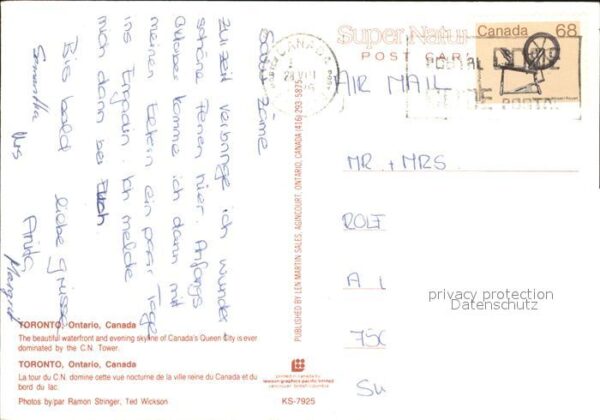 Super Natur
POST CAR
Canada 68
CANADA
POSTAL CODE
CODE POSTAL
AIR MAIL
MR + MRS
ROLF
privacy protection
Datenschutz
Zur Zeit verbringe ich wunder-
schöne Ferien hier. Anfangs
Oktober komme ich dann mit
meinen Eltern ein paar Tage
ins Engadin. Ich melde
mich dann bei Euch
Bis bald liebe Grüsse
Samantha Urs Anita
Margrit
PUBLISHED BY LEN MARTIN SALES, AGINCOURT, ONTARIO, CANADA (416) 293-5875
TORONTO, Ontario, Canada
The beautiful waterfront and evening skyline of Canada's Queen City is ever
dominated by the C.N. Tower.
TORONTO, Ontario, Canada
La tour du C.N. domine cette vue nocturne de la ville reine du Canada et du
bord du lac.
Photos by/par Ramon Stringer, Ted Wickson
KS-7925